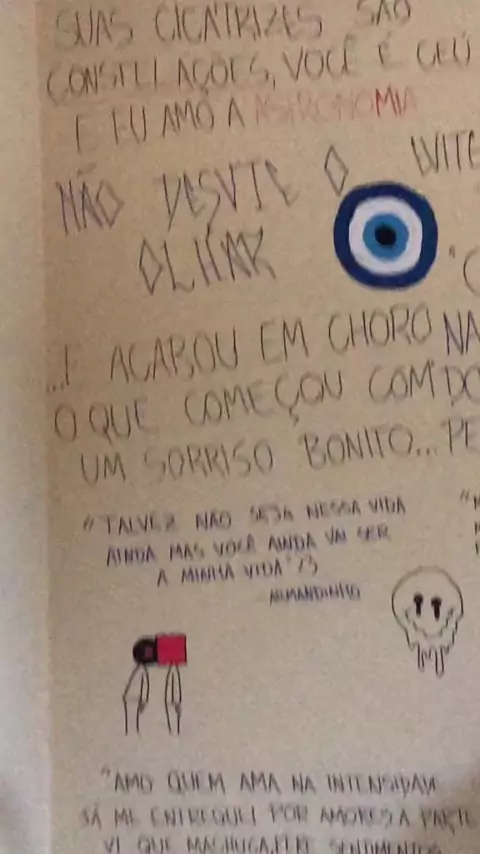 SUAS CICATRIZES SÃO
CONSTELAÇÕES, VOCÊ É CÉU
E EU AMO A ASTRONOMIA
NÃO DESVIE O
OLHAR
...E ACABOU EM CHORO
O QUE COMEÇOU COM
UM SORRISO BONITO...
"TALVEZ NÃO SEJA NESSA VIDA
AINDA MAS VOCÊ AINDA VAI SER
A MINHA VIDA"
ARMANDINHO
"AMO QUEM AMA NA INTENSIDADE
JÁ ME ENTREGUEI POR AMORES A PARTE
VI QUE MACHUCA, FERE SENTIMENTOS